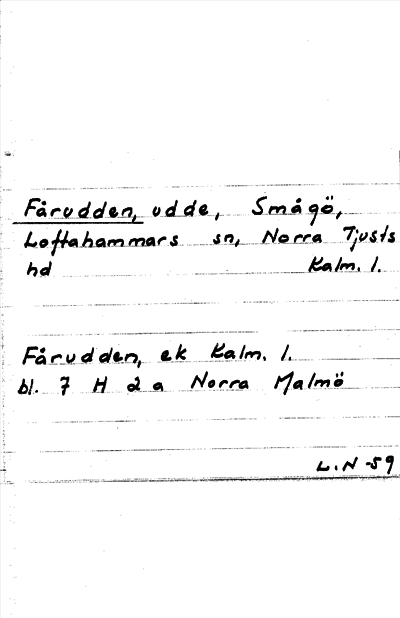 Fårudden, udde, Smågö,
Loftahammars sn, Norra Tjusts
hd Kalm. l.
Fårudden, ek Kalm. l.
bl. 7 H 2 a Norra Malmö
L.N -59